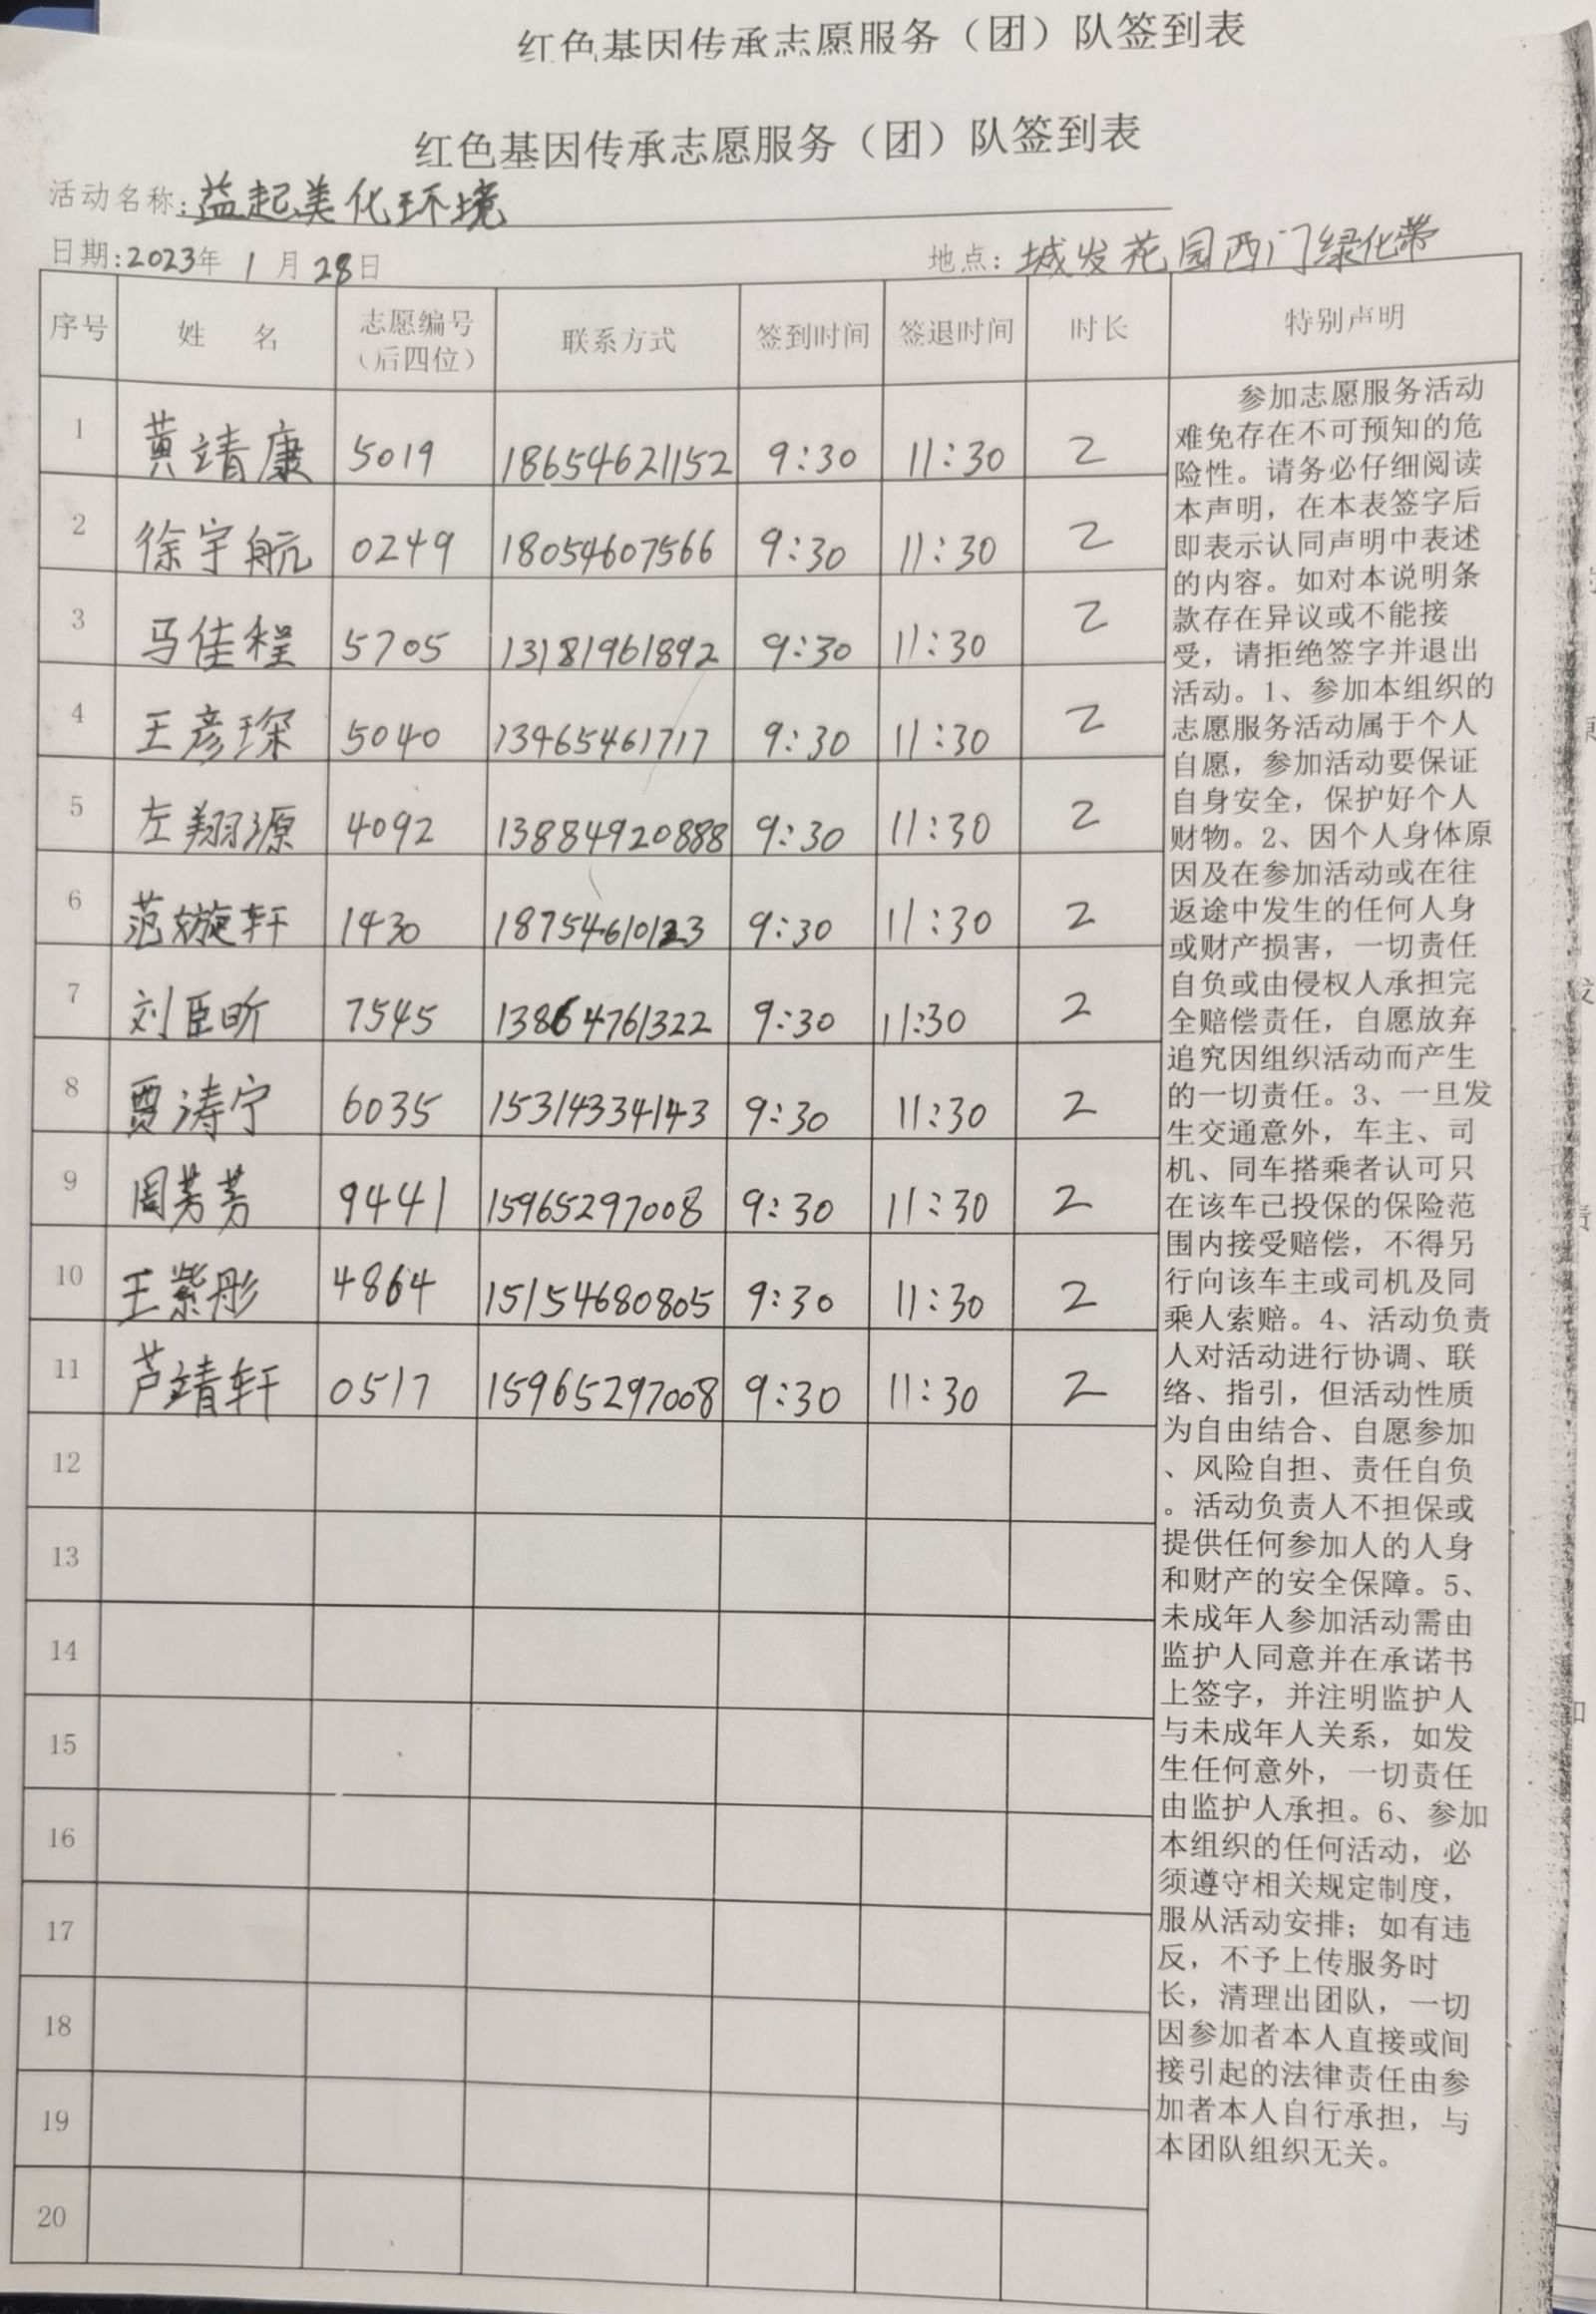 红色基因传承志愿服务（团）队签到表
红色基因传承志愿服务（团）队签到表
活动名称:益起美化环境
日期:2023年 1 月 28日 地点: 城发花园西门绿化带
序号 姓 名 志愿编号（后四位） 联系方式 签到时间 签退时间 时长 特别声明
1 黄靖康 5019 18654621152 9:30 11:30 2
2 徐宇航 0249 18054607566 9:30 11:30 2
3 马佳程 5705 13181961892 9:30 11:30 2
4 王彦琛 5040 13465461717 9:30 11:30 2
5 左翔源 4092 13884920888 9:30 11:30 2
6 范嫙轩 1430 18754610123 9:30 11:30 2
7 刘臣昕 7545 13864761322 9:30 11:30 2
8 贾涛宁 6035 15314334143 9:30 11:30 2
9 周芳芳 9441 15965297008 9:30 11:30 2
10 王紫彤 4864 15154680805 9:30 11:30 2
11 芦靖轩 0517 15965297008 9:30 11:30 2
12
13
14
15
16
17
18
19
20
参加志愿服务活动
难免存在不可预知的危
险性。请务必仔细阅读
本声明，在本表签字后
即表示认同声明中表述
的内容。如对本说明条
款存在异议或不能接
受，请拒绝签字并退出
活动。1、参加本组织的
志愿服务活动属于个人
自愿，参加活动要保证
自身安全，保护好个人
财物。2、因个人身体原
因及在参加活动或在往
返途中发生的任何人身
或财产损害，一切责任
自负或由侵权人承担完
全赔偿责任，自愿放弃
追究因组织活动而产生
的一切责任。3、一旦发
生交通意外，车主、司
机、同车搭乘者认可只
在该车已投保的保险范
围内接受赔偿，不得另
行向该车主或司机及同
乘人索赔。4、活动负责
人对活动进行协调、联
络、指引，但活动性质
为自由结合、自愿参加
、风险自担、责任自负
。活动负责人不担保或
提供任何参加人的人身
和财产的安全保障。5、
未成年人参加活动需由
监护人同意并在承诺书
上签字，并注明监护人
与未成年人关系，如发
生任何意外，一切责任
由监护人承担。6、参加
本组织的任何活动，必
须遵守相关规定制度，
服从活动安排；如有违
反，不予上传服务时
长，清理出团队，一切
因参加者本人直接或间
接引起的法律责任由参
加者本人自行承担，与
本团队组织无关。